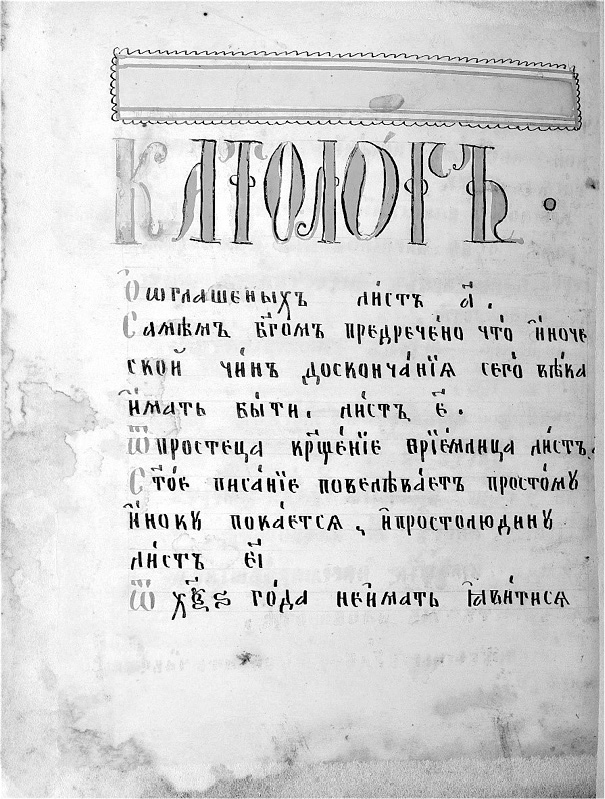 КАТОЛО́ГЪ.
Ѽѡглашеныхъ ли́стъ а҃.
Самѣмъ бг҃омъ предрече́но что̀ и҆́ноче
ской чи́нъ досконча́нїѧ сего̀ вѣ́ка
и҆́мать бы́ти. ли́стъ є҃.
Ѿ простеца кр҃ще́нїе прїе́млица ли́стъ.
Ст҃о́е писа́нїе повелѣва́етъ просто́мꙋ
и҆́нокꙋ покае́тсѧ, и҆простолюдинꙋ
ли́стъ є҃і
Ѿ го́да неи҆́мать ꙗ҆ви́тисѧ